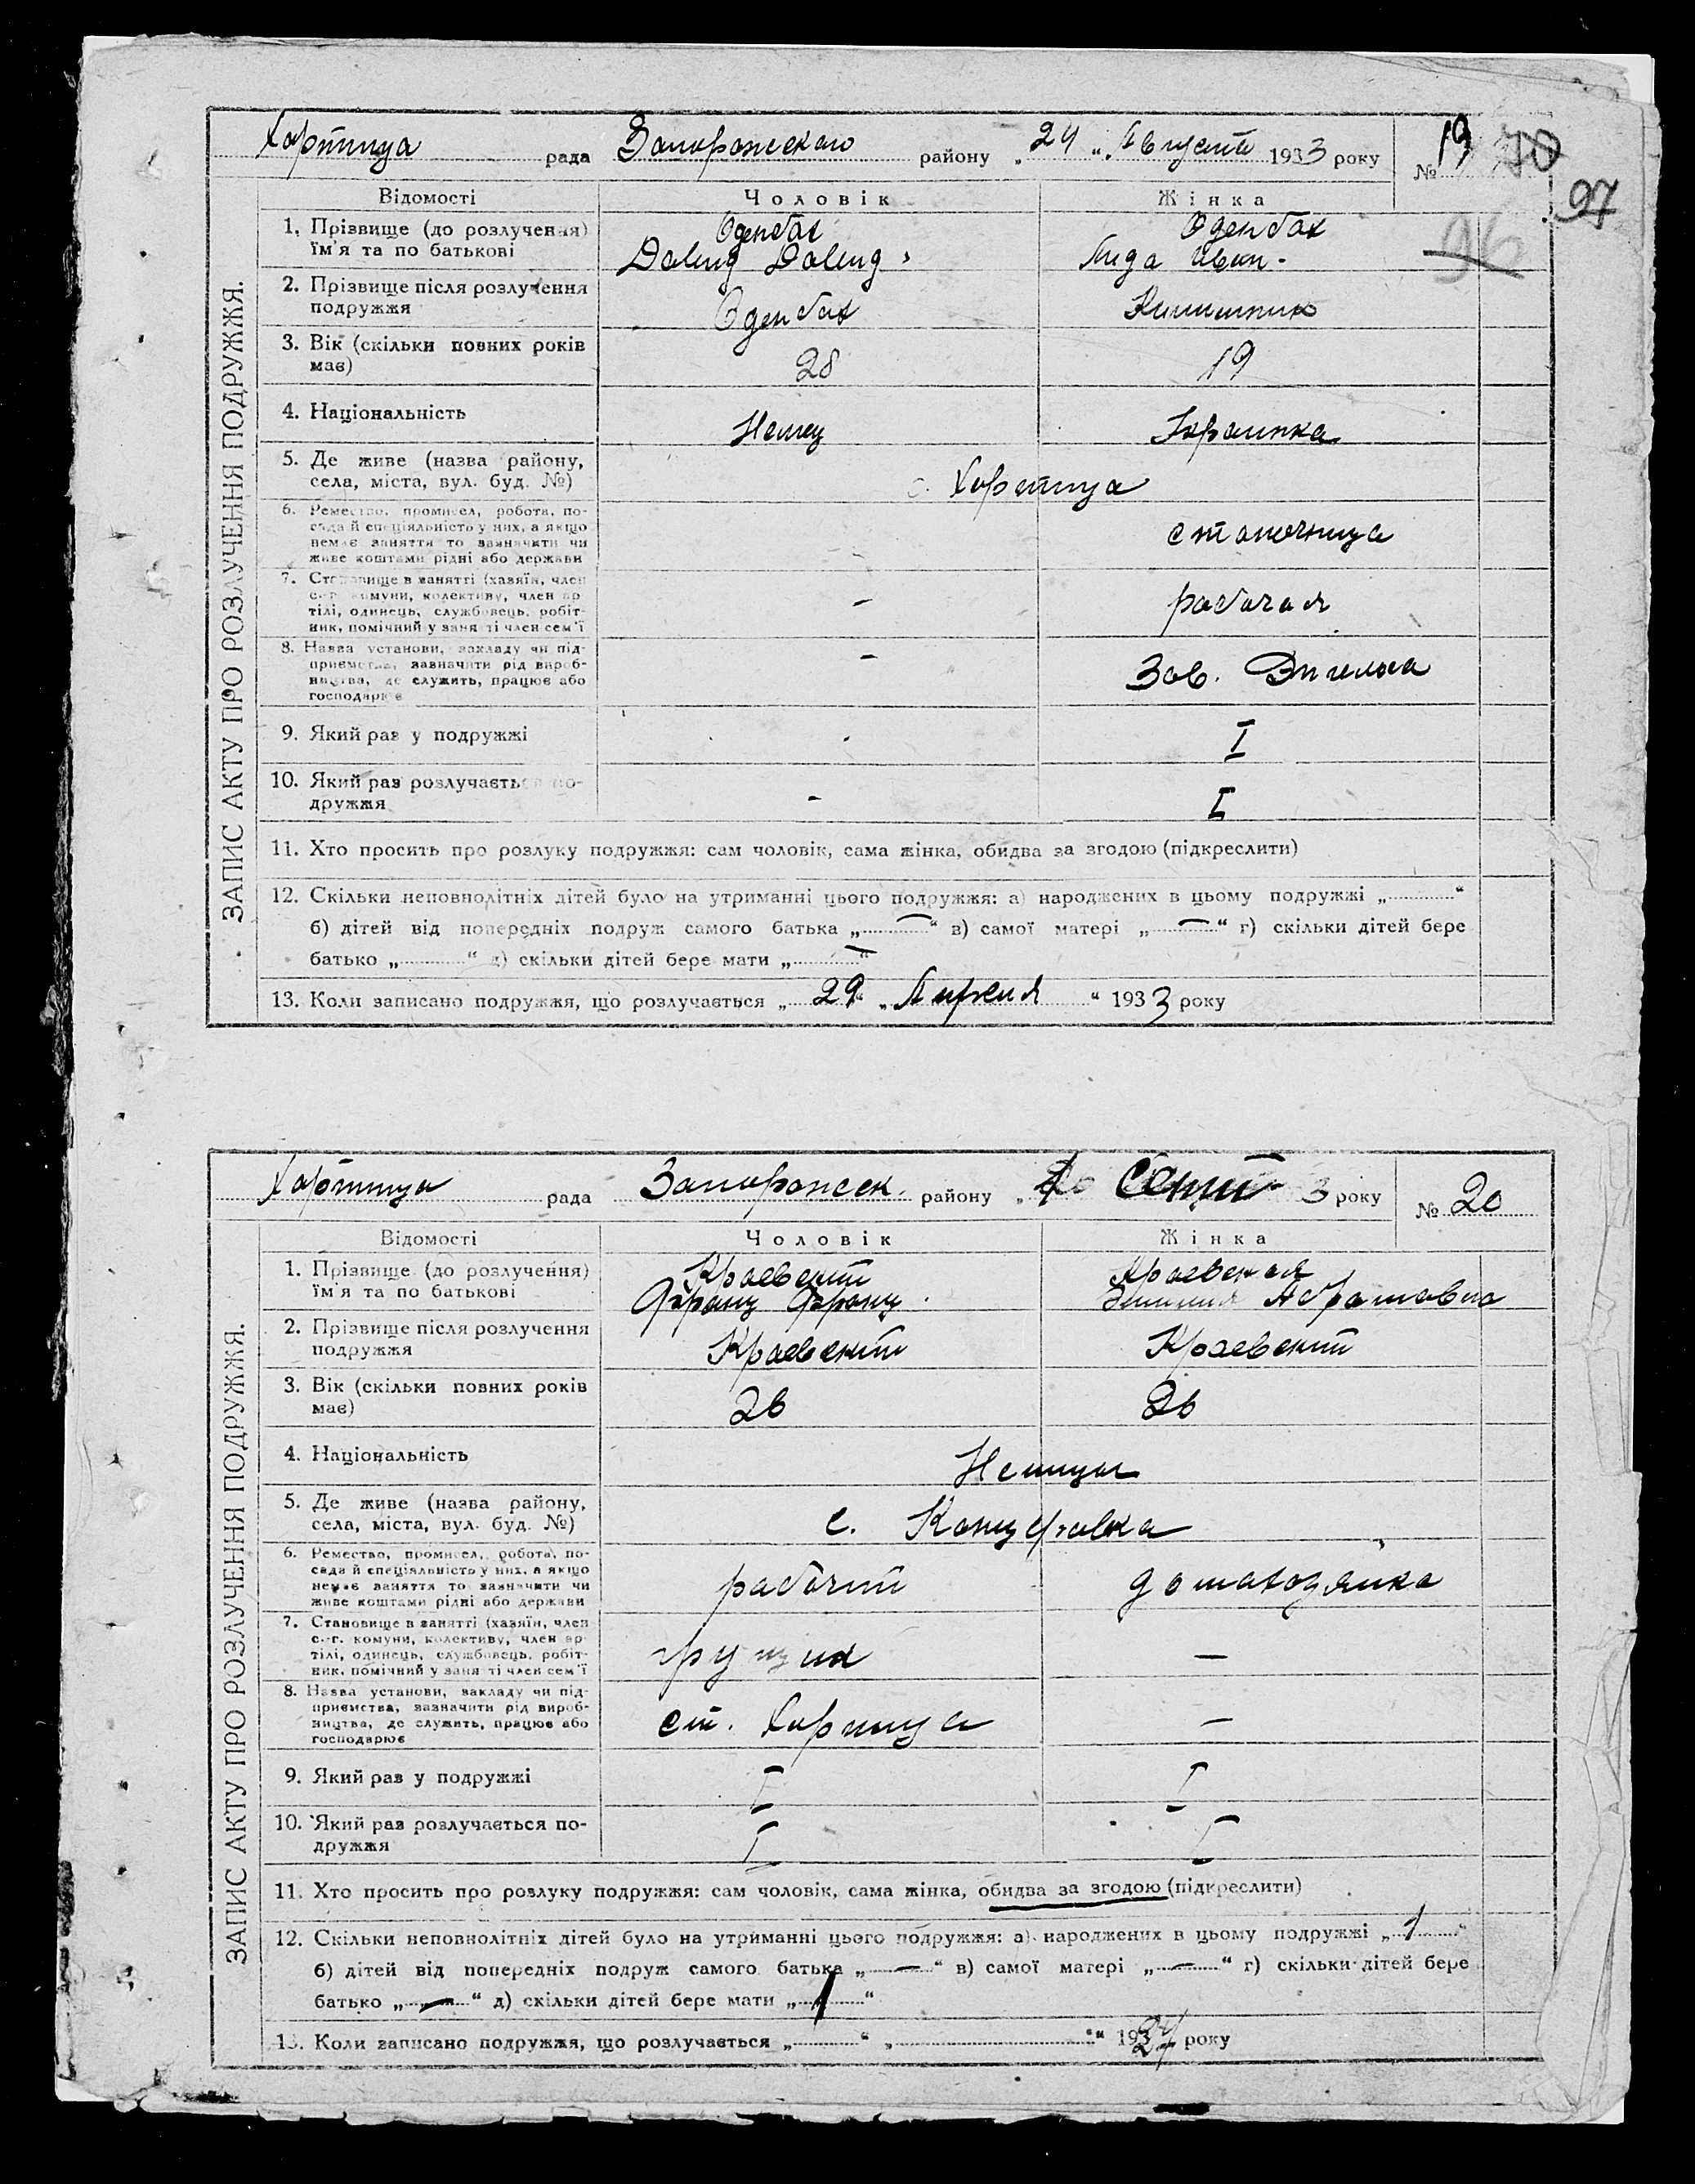 Хортица рада Запорожского району „24„ Августа 1933 року № 19
97
96
ЗАПИС АКТУ ПРО РОЗЛУЧЕННЯ ПОДРУЖЖЯ.
Відомості Чоловік Жінка
1. Прізвище (до розлучення) Оденбах Оденбах
ім'я та по батькові Давид Давид. Лида Иван.
2. Прізвище після розлучення
подружжя Оденбах
3. Вік (скільки повних років
має) 28 19
4. Національність Немец Украинка
5. Де живе (назва району,
села, міста, вул. буд. №) с. Хортица
6. Ремество, промисел, робота, по-
сада й спеціяльність у них, а якщо станочница
немає заняття то зазначити чи
живе коштами рідні або держави
7. Становище в занятті (хазяїн, член
с.-г. комуни, колективу, член ар-
тілі, одинець, службовець, робіт- - рабочая
ник, помічний у занятті член сем'ї
8. Назва установи, закладу чи під-
приємства, зазначити рід вироб- - Зав. Энгельса
ництва, де служить, працює або
господарює
9. Який раз у подружжі I
10. Який раз розлучається по-
дружжя - I
11. Хто просить про розлуку подружжя: сам чоловік, сама жінка, обидва за згодою (підкреслити)
12. Скільки неповнолітніх дітей було на утриманні цього подружжя: а) народжених в цьому подружжі „............“
б) дітей від попередніх подруж самого батька „—“ в) самої матері „—“ г) скільки дітей бере
батько „............“ д) скільки дітей бере мати „—“
13. Коли записано подружжя, що розлучається „29“ „Апреля“ 1933 року
Хортица рада Запорожск. району „ Сент 3 року № 20
ЗАПИС АКТУ ПРО РОЗЛУЧЕННЯ ПОДРУЖЖЯ.
Відомості Чоловік Жінка
1. Прізвище (до розлучення) Краевский Краевская
ім'я та по батькові Франц Франц. Абрамовна
2. Прізвище після розлучення
подружжя Краевский Краевский
3. Вік (скільки повних років
має) 26 26
4. Національність Немцы
5. Де живе (назва району,
села, міста, вул. буд. №) с. Канцеровка
6. Ремество, промисел, робота, по-
сада й спеціяльність у них, а якщо
немає заняття то зазначити чи рабочий домахозяйка
живе коштами рідні або держави
7. Становище в занятті (хазяїн, член
с.-г. комуни, колективу, член ар-
тілі, одинець, службовець, робіт- грузчик —
ник, помічний у занятті член сем'ї
8. Назва установи, закладу чи під-
приємства, зазначити рід вироб-
ництва, де служить, працює або ст. Хортица —
господарює
9. Який раз у подружжі I I
10. Який раз розлучається по-
дружжя I I
11. Хто просить про розлуку подружжя: сам чоловік, сама жінка, обидва за згодою (підкреслити)
12. Скільки неповнолітніх дітей було на утриманні цього подружжя: а) народжених в цьому подружжі „1“
б) дітей від попередніх подруж самого батька „—“ в) самої матері „—“ г) скільки дітей бере
батько „—“ д) скільки дітей бере мати „1“
13. Коли записано подружжя, що розлучається „............“ „............“ року